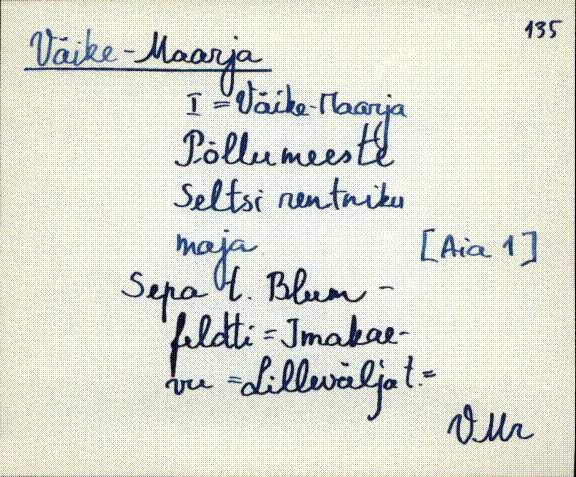 135
Väike-Maarja
I = Väike-Maarja
Põllumeeste
Seltsi rentniku
maja [Aia 1]
Sepa t. Blum-
feldti = Imakae-
vu = Lilleväljat. =
VMr